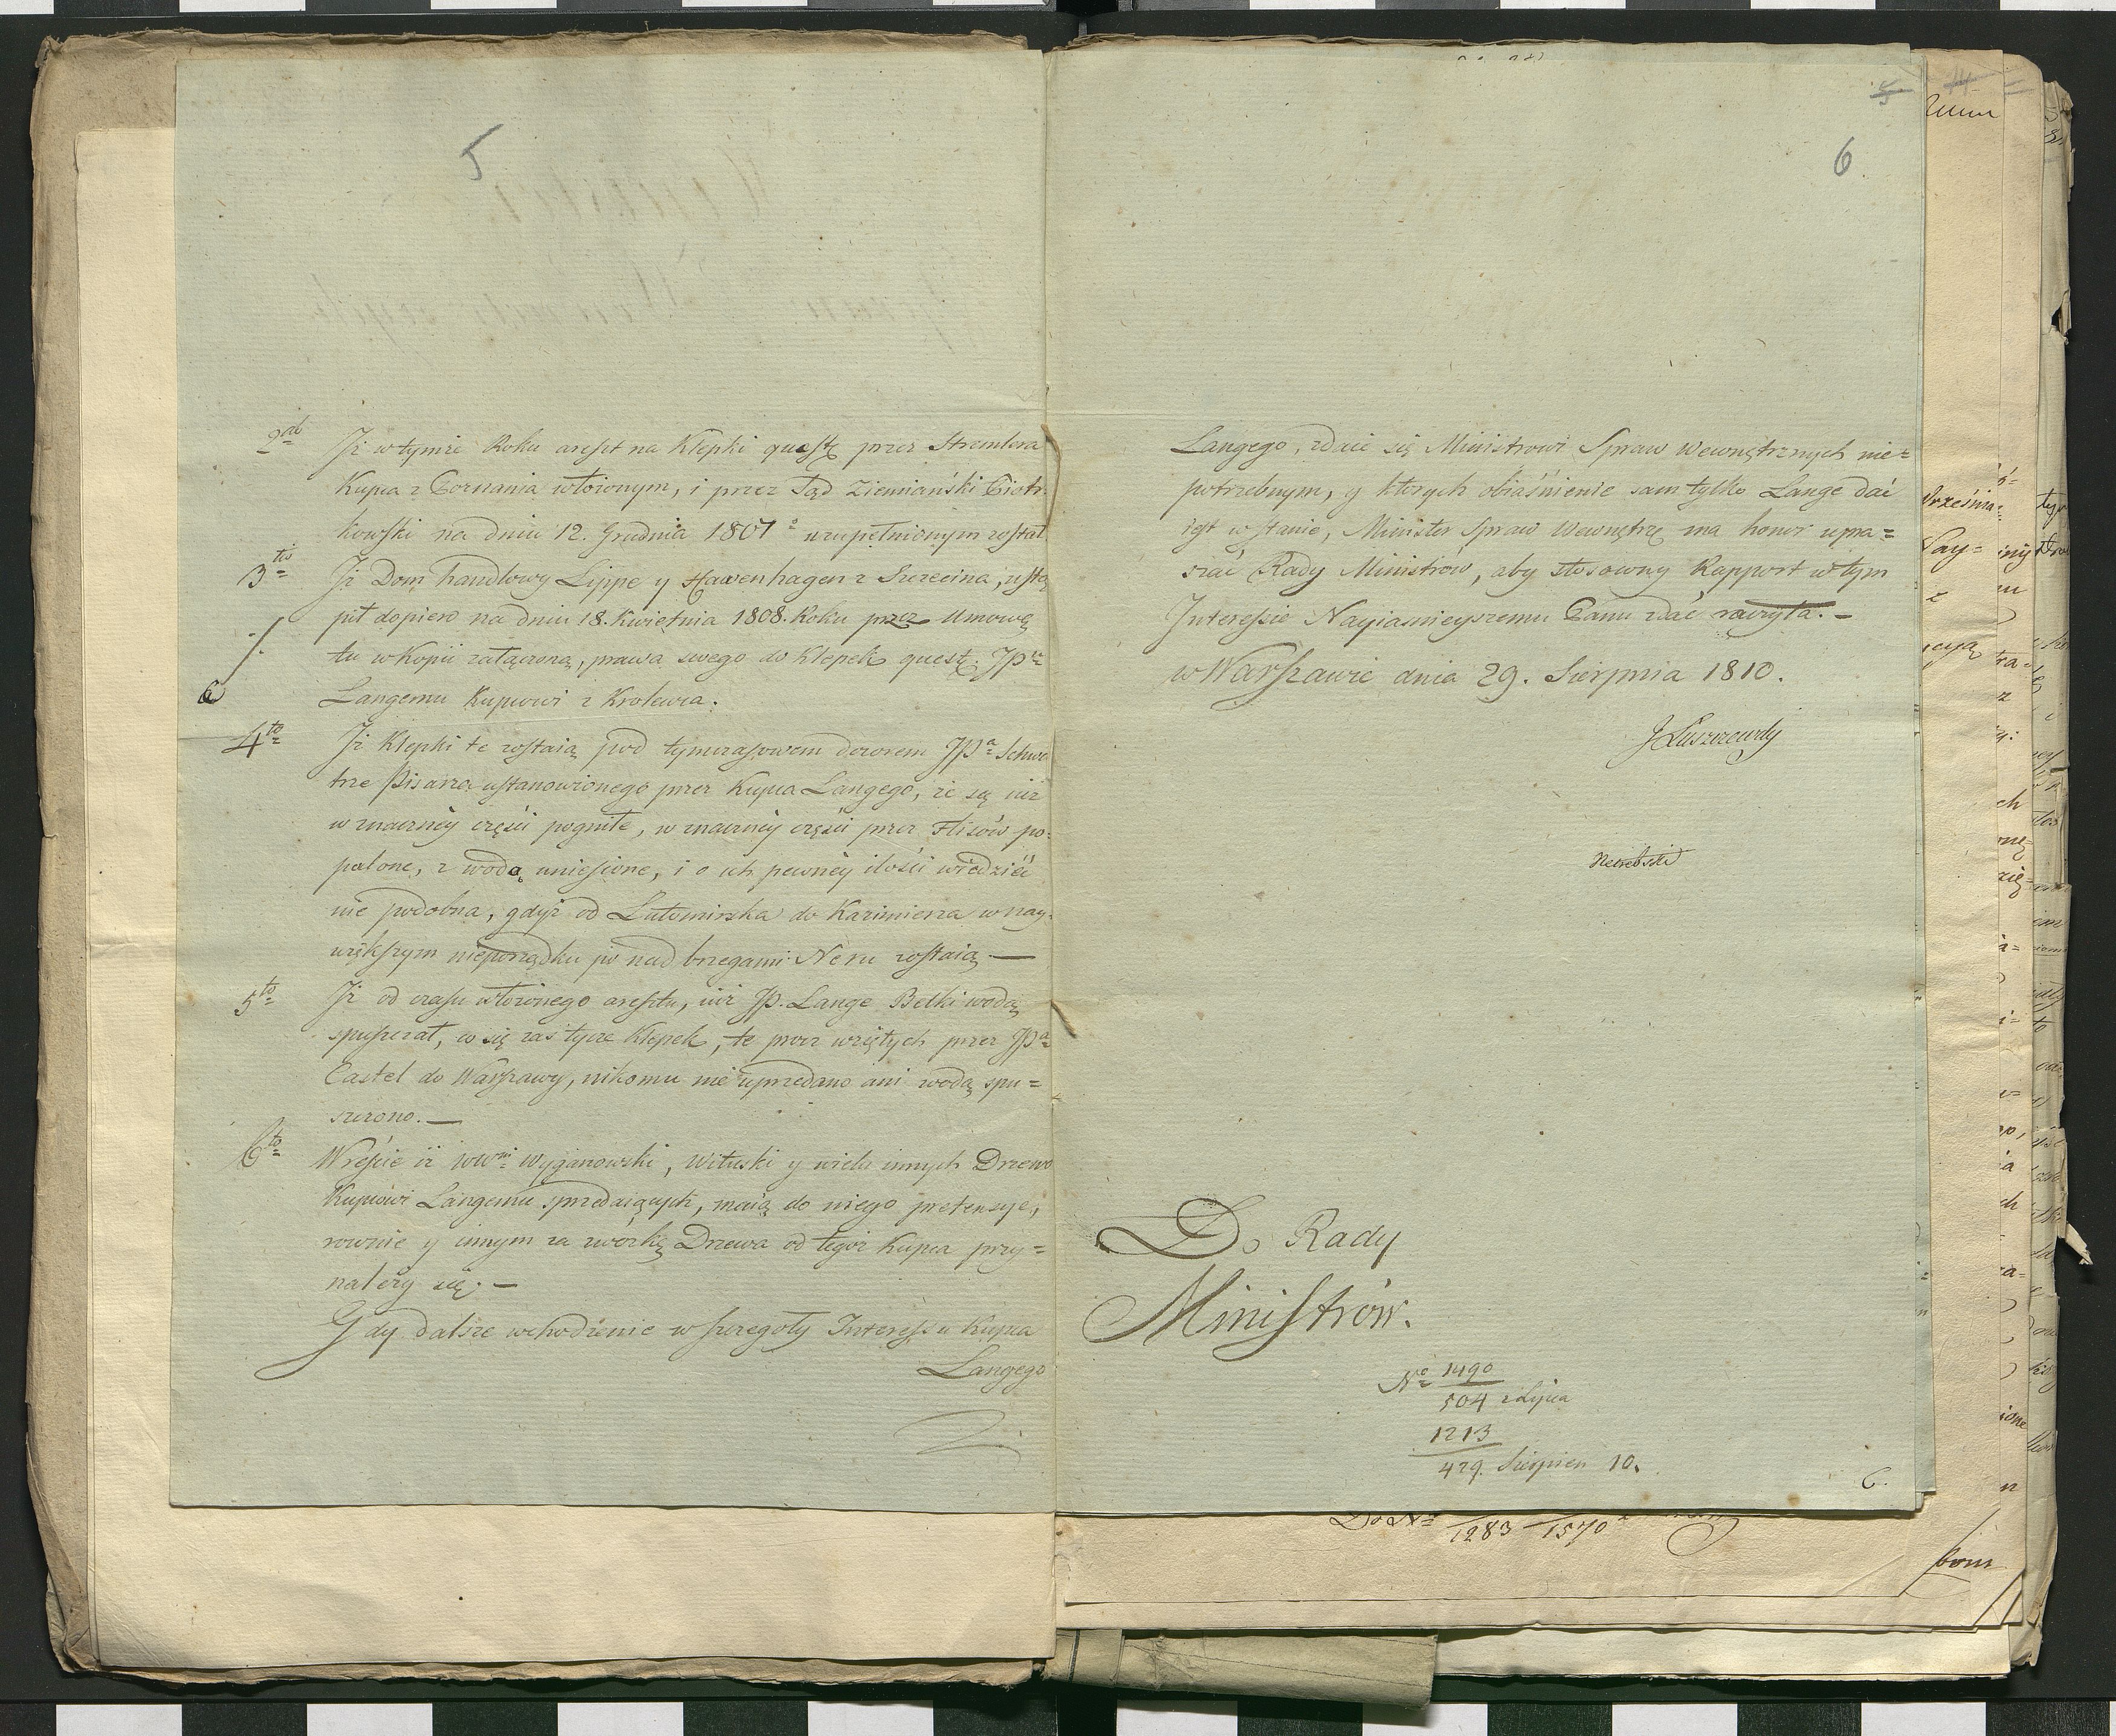 5
2do Jż w tymże Roku areszt na Klepki quest. przez Stremlera
Kupca z Poznania włożonym, i przez Sąd Ziemiański Piotr-
kowski na dniu 12. Grudnia 1807o uzupełnionym został
3tio Jż Dom handlowy Lippe y Hawenhagen z Szczecina, ustą
pił dopiero na dniu 18. Kwietnia 1808. Roku przez Umowę
tu w Kopii załączoną, prawa swego do Klepek quest. JPu
Langemu Kupcowi z Krolewca.
4to Jż Klepki te zostaią pod tymczasowem dozorem JPa Schwe
tze Pisarza ustanowionego przez Kupca Langego, że są iuż
w znaczney części pogniłe, w znaczney części przez Flisów po=
palone, z wodą uniesione, i o ich pewney ilości wiedzieć
nie podobna, gdyż od Lutomirska do Kazimierza w nay=
większym nieporządku po nad brzegami Neru zostaią. —
5to Jż od czasu włożonego aresztu, iuż JP. Lange Belki wodą
spuszczał, co się zas tycze Klepek, te procz wziętych przez JPa
Castel do Warszawy, nikomu nie uprzedano ani wodą spu=
szczono. —
6to Wreście iż WWni Wyganowski, Wituski y wielu innych Drzewo
Kupcowi Langemu sprzedaiących, maią do niego pretensye,
rownie y innym za zwózkę Drzewa od tegoż Kupca przy=
należy się. —
Gdy dalsze wchodzenie w szczegoły Interessu Kupca
Langego
6
Langego, zdaie się Ministrowi Spraw Wewnętrznych nie=
potrzebnym, y ktorych obiaśnienie sam tylko Lange dać
iest w stanie, Minister Spraw Wewnętrz. ma honor upra=
szać Rady Ministrów, aby stosowny Rapport w tym
Interessie Nayiasnieyszemu Panu zdać raczyła. —
w Warszawie dnia 29. Sierpnia 1810.
J Łuszczewsky
Do Rady
Ministrów.
No 1490
504 z Lipca
1213
479. Sierpien 10.
6.
1283 1570